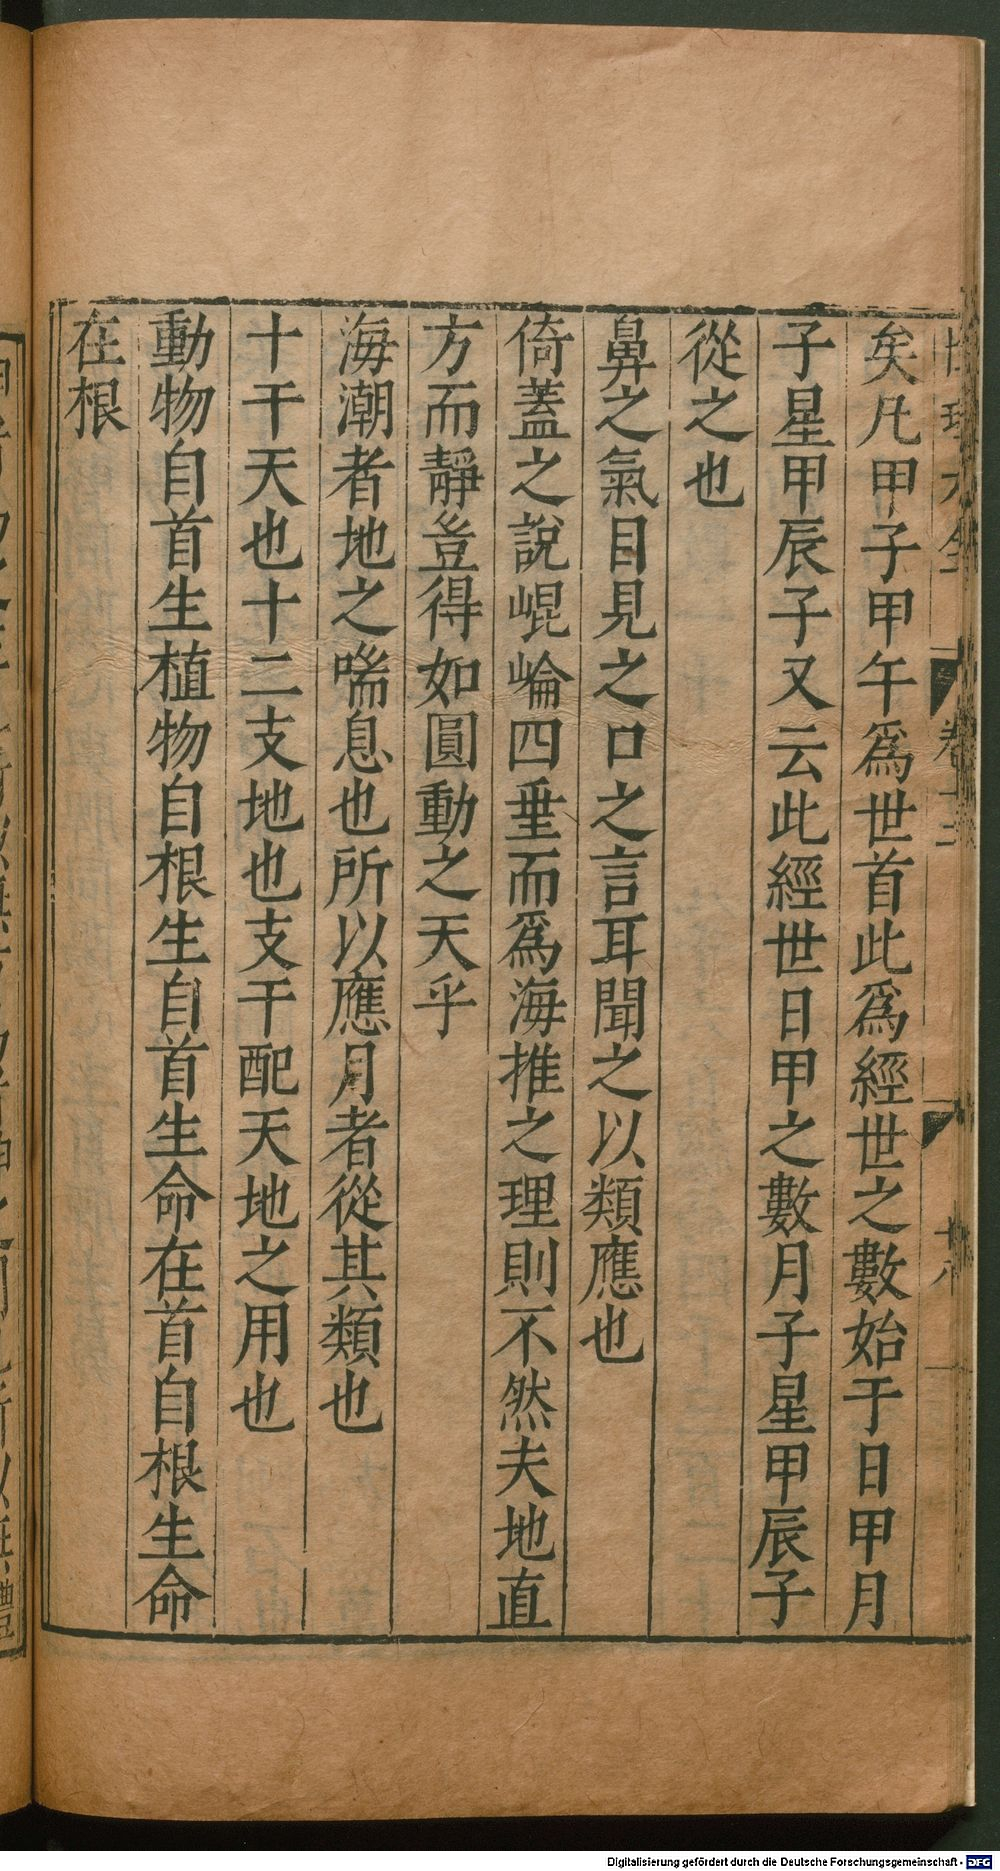 矣凡甲子甲午爲世首此爲經世之數始于日甲月
子星甲辰子又云此經世日甲之數月子星甲辰子
從之也
鼻之氣目見之口之言耳聞之以類應也
倚蓋之說崐崘四垂而爲海推之理則不然夫地直
方而靜豈得如圓動之天乎
海潮者地之喘息也所以應月者從其類也
十干天也十二支地也支干配天地之用也
動物自首生植物自根生自首生命在首自根生命
在根
卷十二
十八
Digitalisierung gefördert durch die Deutsche Forschungsgemeinschaft - DFG